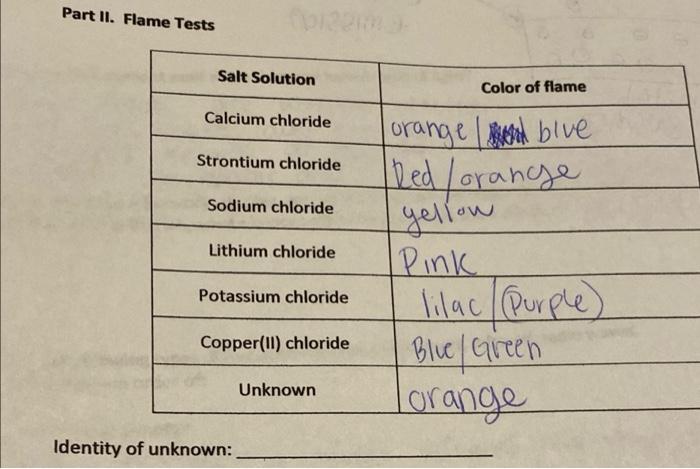 Part II. Flame Tests
Salt Solution Color of flame
Calcium chloride orange / blue
Strontium chloride Red / orange
Sodium chloride yellow
Lithium chloride Pink
Potassium chloride lilac / (Purple)
Copper(II) chloride Blue / Green
Unknown orange
Identity of unknown: